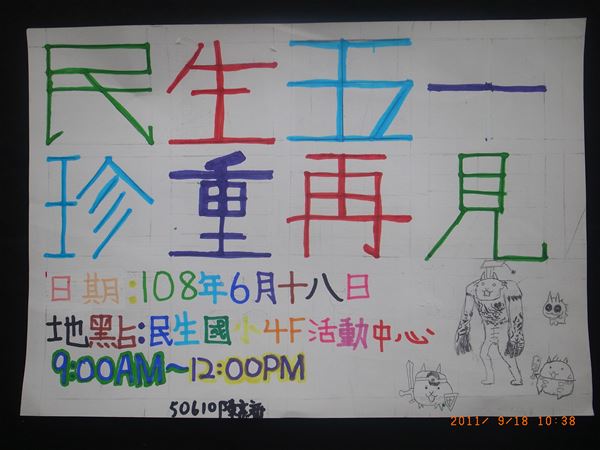 民生五一
珍重再見
日期:108年6月十八日
地點:民生國小4F活動中心
9:00AM~12:00PM
50610陳
2011/ 9/18 10:38